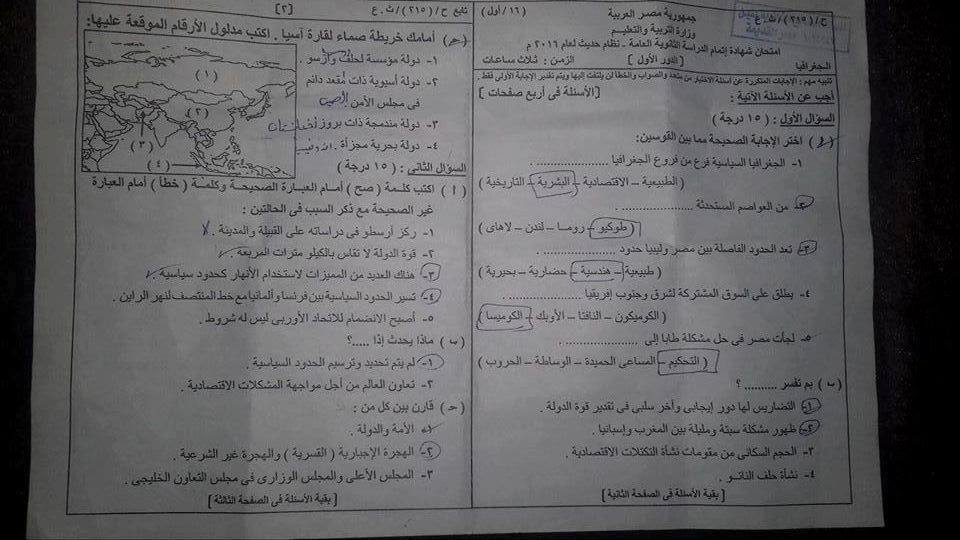 ح / (٢١٥) / ث . ع
(١٦ / أول)
جمهورية مصر العربية
وزارة التربية والتعليم
امتحان شهادة إتمام الدراسة الثانوية العامة – نظام حديث لعام ٢٠١٦ م
الجغرافيا
[الدور الأول]
الزمن : ثلاث ساعات
تنبيه مهم : الإجابات المتكررة عن أسئلة الاختيار من متعدد والصواب والخطأ لن يلتفت إليها ويتم تقدير الإجابة الأولى فقط .
أجب عن الأسئلة الآتية :
[الأسئلة فى أربع صفحات]
السؤال الأول : ( ١٥ درجة )
( أ ) اختر الإجابة الصحيحة مما بين القوسين:
١- الجغرافيا السياسية فرع من فروع الجغرافيا ..................
( الطبيعية – الاقتصادية – البشرية – التاريخية )
٢- من العواصم المستحدثة ..................
( طوكيو – روما – لندن – لاهاى )
٣- تعد الحدود الفاصلة بين مصر وليبيا حدود ..................
( طبيعية – هندسية – حضارية – بحيرية )
٤- يطلق على السوق المشتركة لشرق وجنوب إفريقيا ..................
( الكوميكون – النافتا – الأوبك – الكوميسا )
٥- لجأت مصر فى حل مشكلة طابا إلى ..................
( التحكيم – المساعى الحميدة – الوساطة – الحروب )
( ب ) بم تفسر .......... ؟
١- التضاريس لها دور إيجابى وآخر سلبى فى تقدير قوة الدولة .
٢- ظهور مشكلة سبتة ومليلة بين المغرب وإسبانيا .
٣- الحجم السكانى من مقومات نشأة التكتلات الاقتصادية .
٤- نشأة حلف الناتو .
[ بقية الأسئلة فى الصفحة الثانية ]
[٢]
تابع ح / (٢١٥) / ث . ع
(جـ) أمامك خريطة صماء لقارة آسيا . اكتب مدلول الأرقام الموقعة عليها:
١- دولة مؤسسة لحلف وارسو .
٢- دولة آسيوية ذات مقعد دائم
فى مجلس الأمن الصين
٣- دولة مندمجة ذات بروز
٤- دولة بحرية مجزأة .
( ١ )
( ٢ )
( ٣ )
( ٤ )
السؤال الثانى : ( ١٥ درجة )
( أ ) اكتب كلمة ( صح ) أمام العبارة الصحيحة وكلمة ( خطأ ) أمام العبارة
غير الصحيحة مع ذكر السبب فى الحالتين :
١- ركز أرسطو فى دراساته على القبيلة والمدينة .
٢- قوة الدولة لا تقاس بالكيلو مترات المربعة .
٣- هناك العديد من المميزات لاستخدام الأنهار كحدود سياسية .
٤- تسير الحدود السياسية بين فرنسا وألمانيا مع خط المنتصف لنهر الراين .
٥- أصبح الانضمام للاتحاد الأوربى ليس له شروط .
( ب ) ماذا يحدث إذا .....؟
١- لم يتم تحديد وترسيم الحدود السياسية .
٢- تعاون العالم من أجل مواجهة المشكلات الاقتصادية .
( جـ ) قارن بين كل من :
١- الأمة والدولة .
٢- الهجرة الإجبارية ( القسرية ) والهجرة غير الشرعية .
٣- المجلس الأعلى والمجلس الوزارى فى مجلس التعاون الخليجى .
[ بقية الأسئلة فى الصفحة الثالثة ]